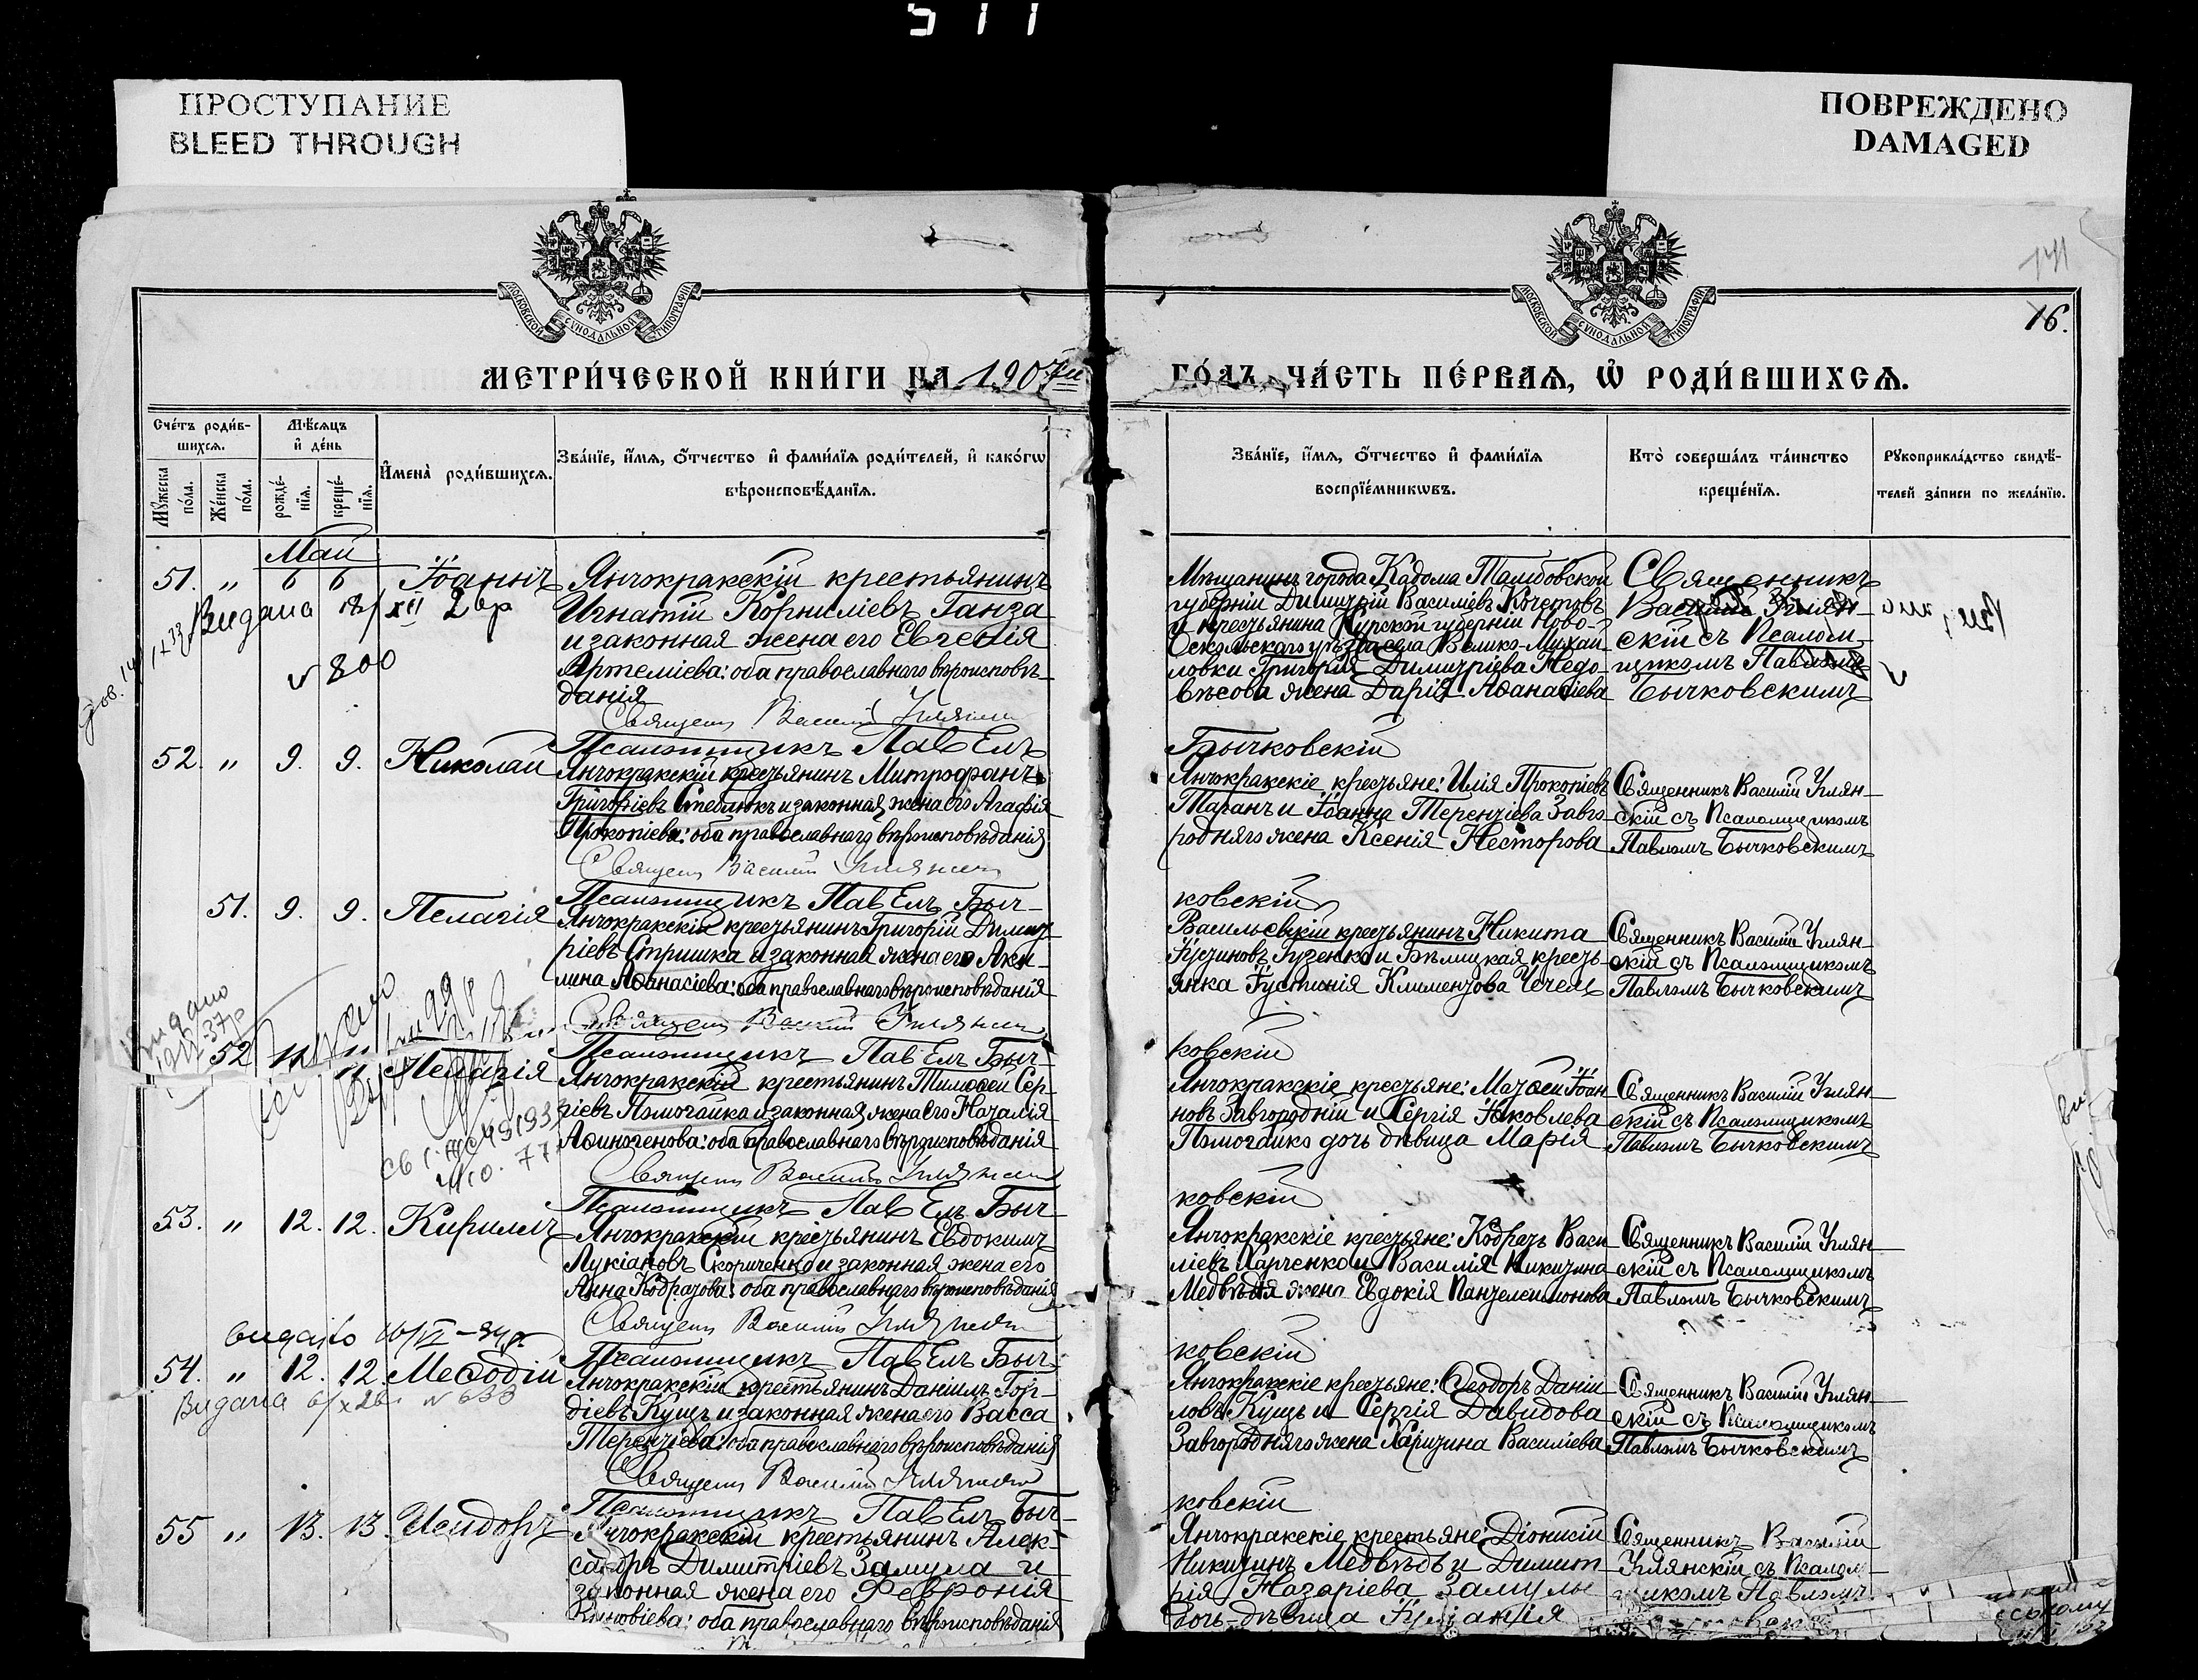 511
ПРОСТУПАНИЕ
BLEED THROUGH
ПОВРЕЖДЕНО
DAMAGED
МОСКОВСКОЙ СѴНОДАЛЬНОЙ ТИПОГРАФІИ
МОСКОВСКОЙ СѴНОДАЛЬНОЙ ТИПОГРАФІИ
141
16.
МЕТРИ́ЧЕСКОЙ КНИ́ГИ НА 1907й
ГО́ДЪ, ЧА́СТЬ ПЕ́РВАѦ, Ѡ РОДИ́ВШИХСѦ.
Сче́тъ роди́в-
шихсѧ.
Мѣ́сѧцъ
и҆ де́нь
Мꙋ́жеска по́ла.
Же́нска по́ла.
рожде́-нїѧ.
креще́-нїѧ.
И҆мена̀ роди́вшихсѧ.
Зва́нїе, и҆́мѧ, ѻ҆́тчество и҆ фами́лїѧ роди́телей, и҆ како́гѡ
вѣроисповѣ́данїѧ.
Зва́нїе, и҆́мѧ, ѻ҆́тчество и҆ фами́лїѧ
воспрїе́мникѡвъ.
Кто̀ соверша́лъ та́инство
креще́нїѧ.
Рꙋкоприкла́дство свидѣ́-
телей за́писи по жела́нїю.
Май
51. " 6 6 Іоаннъ Янчокракскій крестьянинъ
Игнатій Корниліевъ Ганза
и законная жена его Евгенія
Артеміева: оба православнаго вѣроисповѣ-
данія
Видана
800
Священ Василій Углянскій
Мѣщанинъ города Кадома Тамбовской
губерніи Димитрій Василіевъ Кочетовъ
и крестьянина Курской губерніи Ново-
Оскольскаго уѣзда села Велико-Михай
ловки Григорія Димитріева Недо
вѣсова жена Дарія Аѳанасіева
Священникъ
Василій Углян-
скій съ Псалом-
щикомъ Павломъ
Бычковскимъ
Псаломщикъ Павелъ
Бычковскій
52. " 9. 9. Николай Янчокракскій крестьянинъ Митрофанъ
Григоріевъ Стеблюкъ и законная жена его Агафія
Прокопіева: оба православнаго вѣроисповѣданія
Священ Василій Углянскій
Янчокракскіе крестьяне: Илія Прокопіевъ
Таранъ и Іоанна Терентіева Завго-
родняго жена Ксенія Несторова
Священникъ Василій Углян-
скій съ Псаломщикомъ
Павломъ Бычковскимъ
Псаломщикъ Павелъ Быч-
ковскій
51. 9. 9. Пелагія Янчокракскій крестьянинъ Григорій Димит
ріевъ Стришка и законная жена его Аки-
лина Аѳанасіева: оба православнаго вѣроисповѣданія
Священ Василій Углянскій
Васильевскій крестьянинъ Никита
Гузенко и Бѣлицкая кресть-
янка Іустинія Климентова Чечель
Священникъ Василій Углян-
скій съ Псаломщикомъ
Павломъ Бычковскимъ
Псаломщикъ Павелъ Быч-
ковскій
52 11 11 Пелагія Янчокракскій крестьянинъ Тимоѳей Сер-
гіевъ Помогайко и законная жена его Наталія
Аѳиногенова: оба православнаго вѣроисповѣданія
Священ Василій Углянскій
Янчокракскіе крестьяне: Матѳей Іоан
новъ Завгородній и Сергія Яковлева
Помогайко дочь дѣвица Марія
Священникъ Василій Углян-
скій съ Псаломщикомъ
Павломъ Бычковскимъ
Псаломщикъ Павелъ Быч-
ковскій
53. " 12. 12. Кириллъ Янчокракскій крестьянинъ Евдокимъ
Лукіановъ Скориченко и законная жена его
Анна Кодратова: оба православнаго вѣроисповѣданія
Священ Василій Углянскій
Янчокракскіе крестьяне: Кодратъ Васи
ліевъ Харченко и Василія Никитина
Медвѣдя жена Евдокія Пантелеимонова
Священникъ Василій Углян-
скій съ Псаломщикомъ
Павломъ Бычковскимъ
Псаломщикъ Павелъ Быч-
ковскій
54. " 12. 12. Меѳодій Янчокракскій крестьянинъ Даніилъ Гор-
діевъ Кущъ и законная жена его Васса
Терентіева: оба православнаго вѣроисповѣданія
Видана
Священ Василій Углянскій
Янчокракскіе крестьяне: Ѳеодоръ Даніи
ловъ Кущъ и Сергія Давидова
Завгородняго жена Харитина Василіева
Священникъ Василій Углян-
скій съ Псаломщикомъ
Павломъ Бычковскимъ
Псаломщикъ Павелъ Быч-
ковскій
55 " 13. 13. Исидоръ Янчокракскій крестьянинъ Алек-
сандръ Димитріевъ Замула и
законная жена его Февронія
Зиновіева: оба православнаго вѣроисповѣданія
Янчокракскіе крестьяне: Діонисій
Никитинъ Медвѣдь и Димит-
рія Назаріева Замулы
дочь-дѣвица Іуліанія
Священникъ Василій
Углянскій съ Псалом-
щикомъ Павломъ